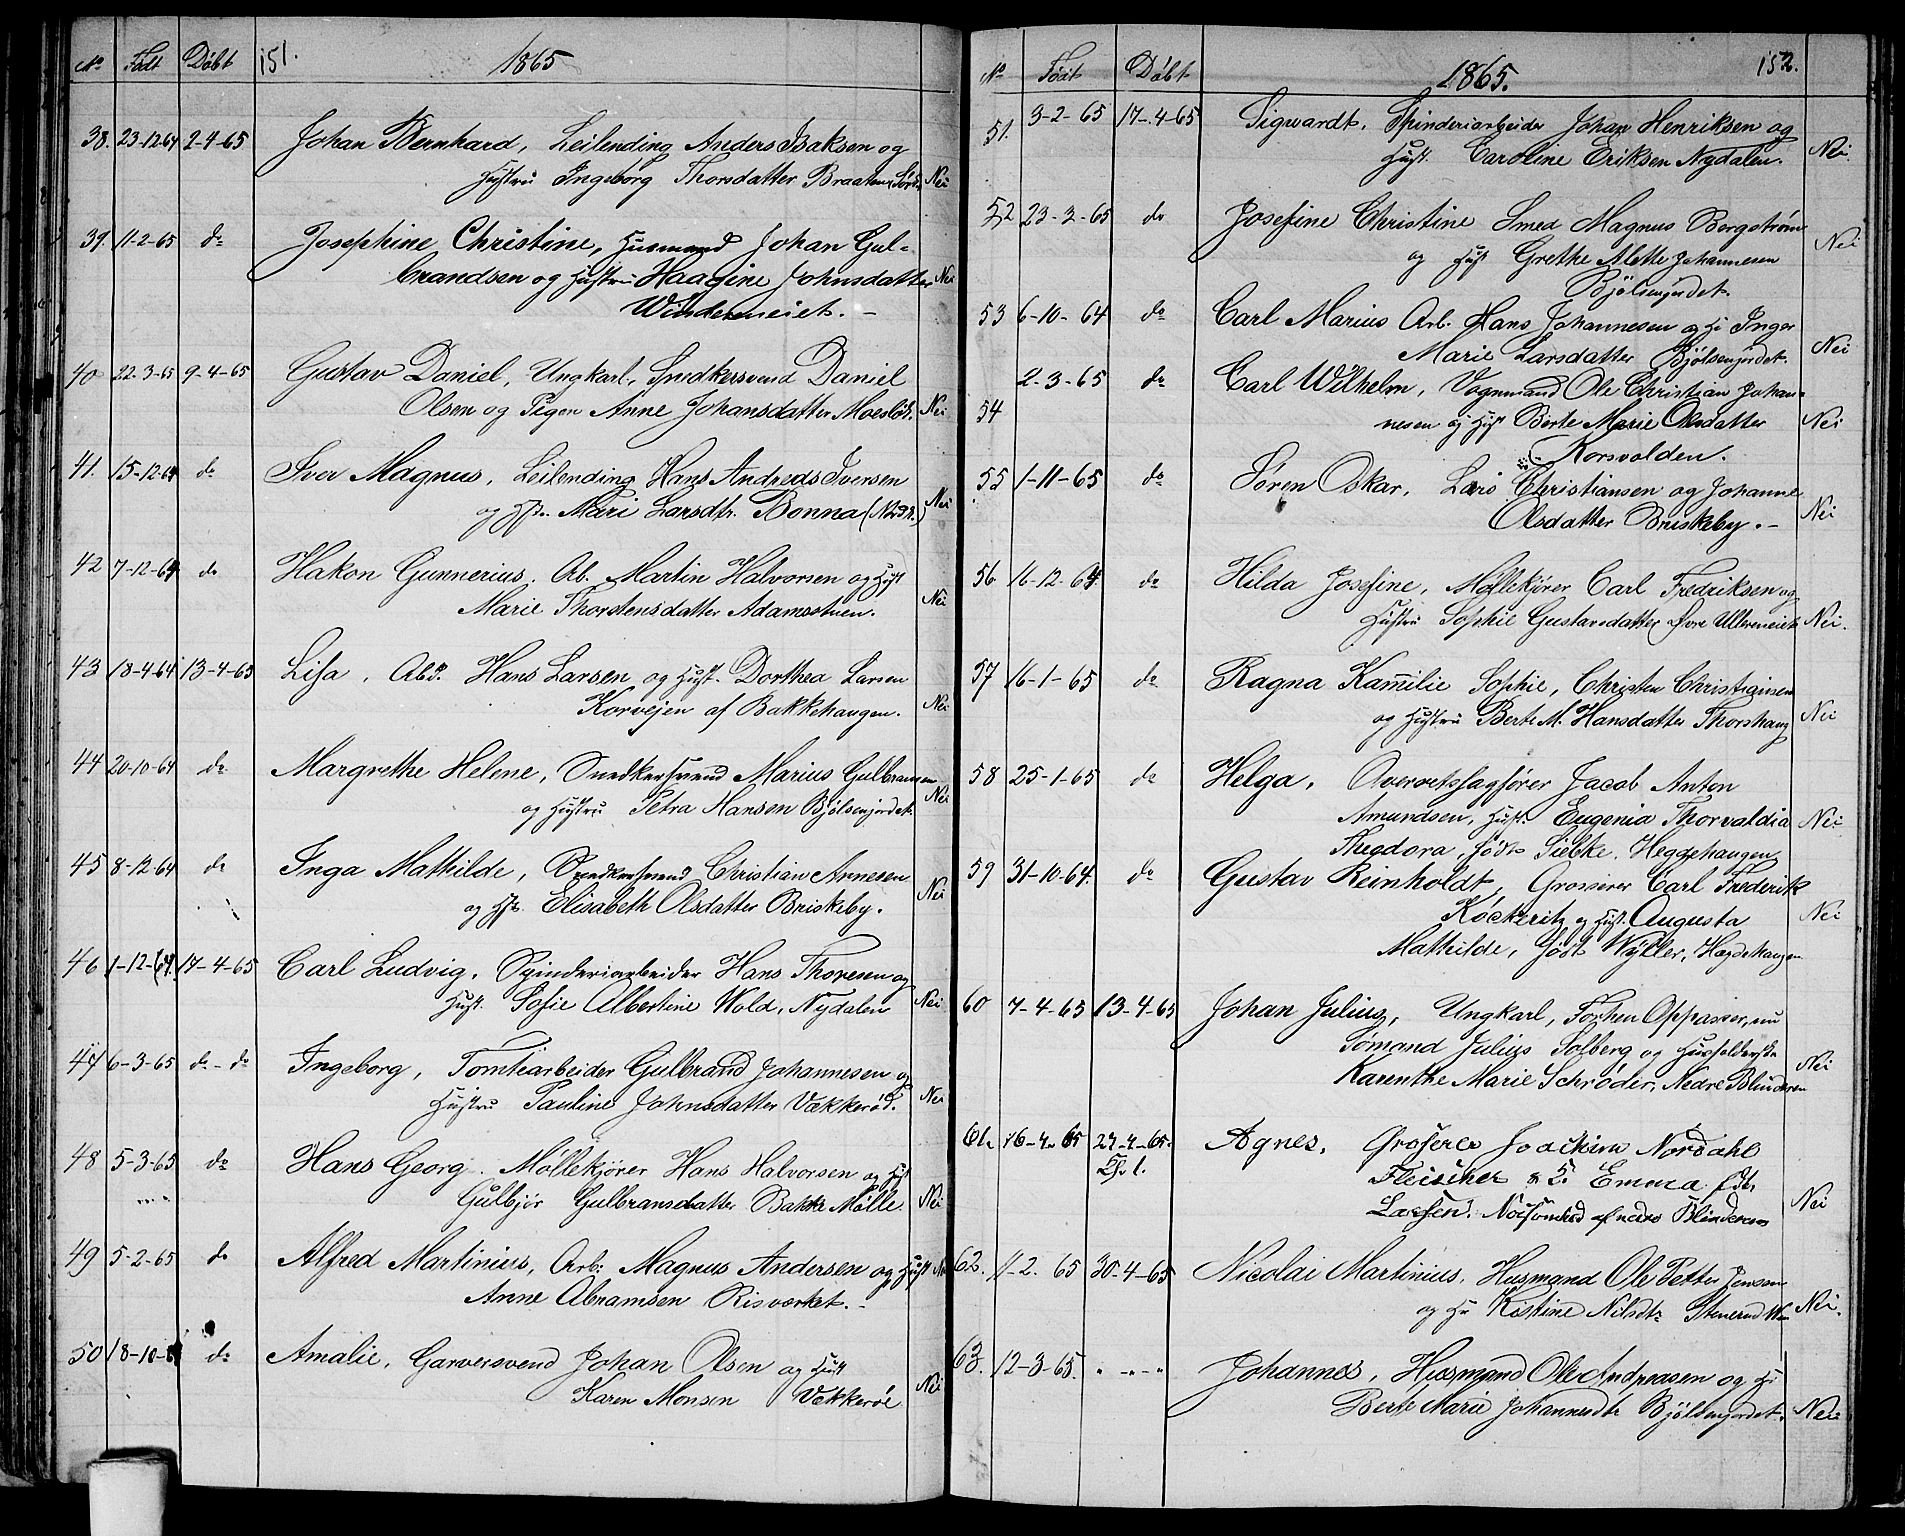 No Født Døbt 151. 1865
38. 23-12-64 2-4-65 Johan Bernhard, Leilending Anders Isaksen og
Hustru Ingeborg Thorsdatter Braaten Nei
39. 11-2-65 do Josephine Christine, Husmand Johan Gul-
brandsen og Hustru Haagine Johnsdatter Nei
Winderneiet. -
40 22-3-65 9-4-65 Gustav Daniel, Ungkarl, Snedkersvend Daniel
Olsen og Pigen Anne Johansdatter Nei
41. 15-12-64 do Iver Magnus, Leilending Hans Andreas Iversen
og Hst. Mari Larsdtr. Bonna Nei
42 7-12-64 do Hakon Gunnerius. Ab. Martin Halvorsen og Hust
Marie Thorstensdatter Adamsstuen. Nei
43 18-4-64 13-4-65 Lisa, Abd. Hans Larsen og Hust. Dorthea Larsen
Korvejen af Bakkehaugen. Nei
44 20-10-64 do Margrethe Helene, Snedkersvend Marius Gulbransen
og Hustru Petra Hansen Bjølsenjordet. Nei
45 8-12-64 do Inga Mathilde, Snedkersvend Christian Arnesen
og Hst. Elisabeth Olsdatter Briskeby. Nei
46 1-12-64. 17-4-65 Carl Ludvig. Spinderiarbeider Hans Thoresen og
Hust. Sofie Albertine Wold, Nydalen Nei
47 6-3-65 do-do Ingeborg, Tomtearbeider Gulbrand Johannesen og
Hustru Pauline Johnsdatter Vækkerød. Nei
48 5-3-65 do Hans Georg. Møllekjører Hans Halvorsen og Hust
Gulbjør Gulbransdatter Bakke Mølle. Nei
49 5-2-65 do Alfred Martinius, Arb: Magnus Andersen og Hust Nei
Anne Abramsen Risværket. -
50 18-10-64 do Amalie, Garversvend Johan Olsen og Hust
Karen Monsen Vækkerøe Nei
No Født Døbt 1865. 152.
51. 3-2-65 17-4-65 Sigwardt. Spinderiarbeider Johan Henriksen og
Hust. Caroline Eriksen Nydalen. Nei.
52 23-2-65 do Josefine Christine Smed Magnus Bergstrøm
og Hust Grethe Alette Johannesen Nei
Bjølsenjordet.
53 6-10-64 do Carl Marius Arb. Hans Johannesen og H: Inger
Marie Larsdatter Bjølsenjordet. Nei
54 2-3-65 do Carl Wilhelm, Vognmand Ole Christian Johan-
nesen og Hust Berte Marie Olsdatter Nei
Korsvolden.
55 1-11-65 do Søren Oskar, Lars Christiansen og Johanne
Olsdatter Briskeby. - Nei
56 16-12-64. do Hilda Josefine, Møllekjører Carl Fredriksen og
Hustru Sophie Gustavsdatter Øvre Ullereneiet Nei.
57 16-1-65 do Ragna Kamilie Sophie, Christen Christiansen
og Hustru Berte M. Hansdatter Thorshaug Nei
58 25-1-65 do Helga, Overretssagfører Jacob Anton
Amundsen, Hust. Eugenia Thorvaldia Nei
Theodora, født Siebke. Hegdehaugen
59 31-10-64. do Gustav Reinholdt, Grosserer Carl Frederik
Köckritz og Hust. Augusta Nei
Mathilde, født Wyller, Hegdehaugen
60 7-4-65 13-4-65 Johan Julius, Ungkarl, Forhen Oppasser, nu
Sømand Julius Solberg og Husholderske
Karenthe Marie Schrøder, Nedre Blinderen Nei
61. 16-4-65 27-4-65. Agnes, Grosserer Joachim Nordahl
Fleischer & H. Emma fdt.
Lassen. af nedre Blinderen Nei
62. 11-2. 65 30-4-65 Nicolai Martinius, Husmand Ole Petter Jensen
og Hu Kistine Nilsdtr Nei.
63. 12-3-65. " - " - " Johannes, Husmand Ole Andreasen og H:
Berte Marie Johannesdtr Bjølsenjordet. Nei